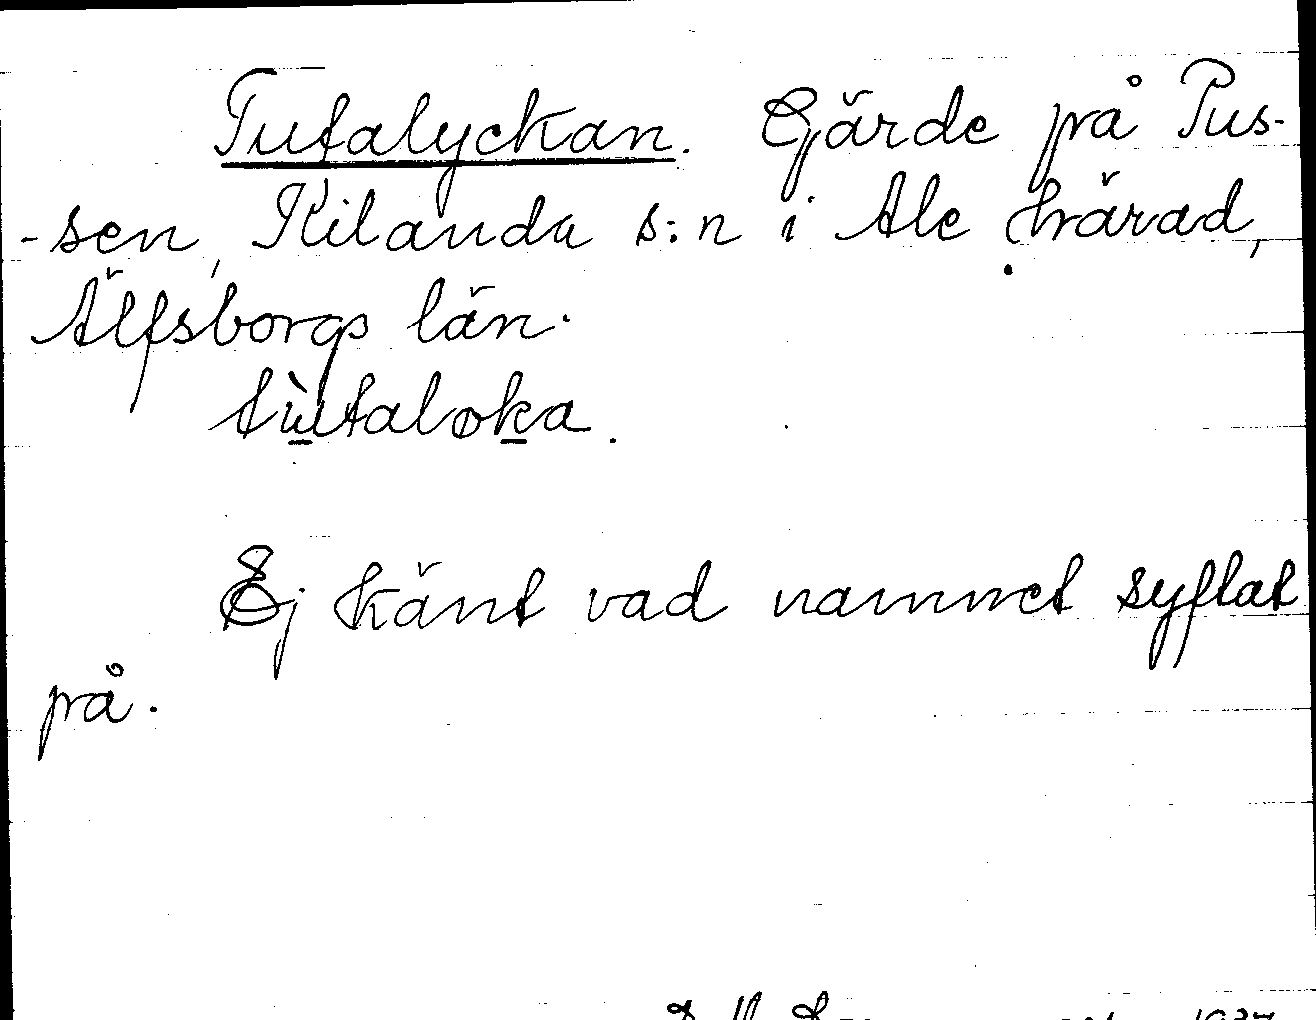 Tutalyckan. Gjärde på Pus-
-sen, Kilanda s:n i Ale härad,
Älfsborgs län.
tùtaloka.
Ej känt vad namnet syftat
på.
1937